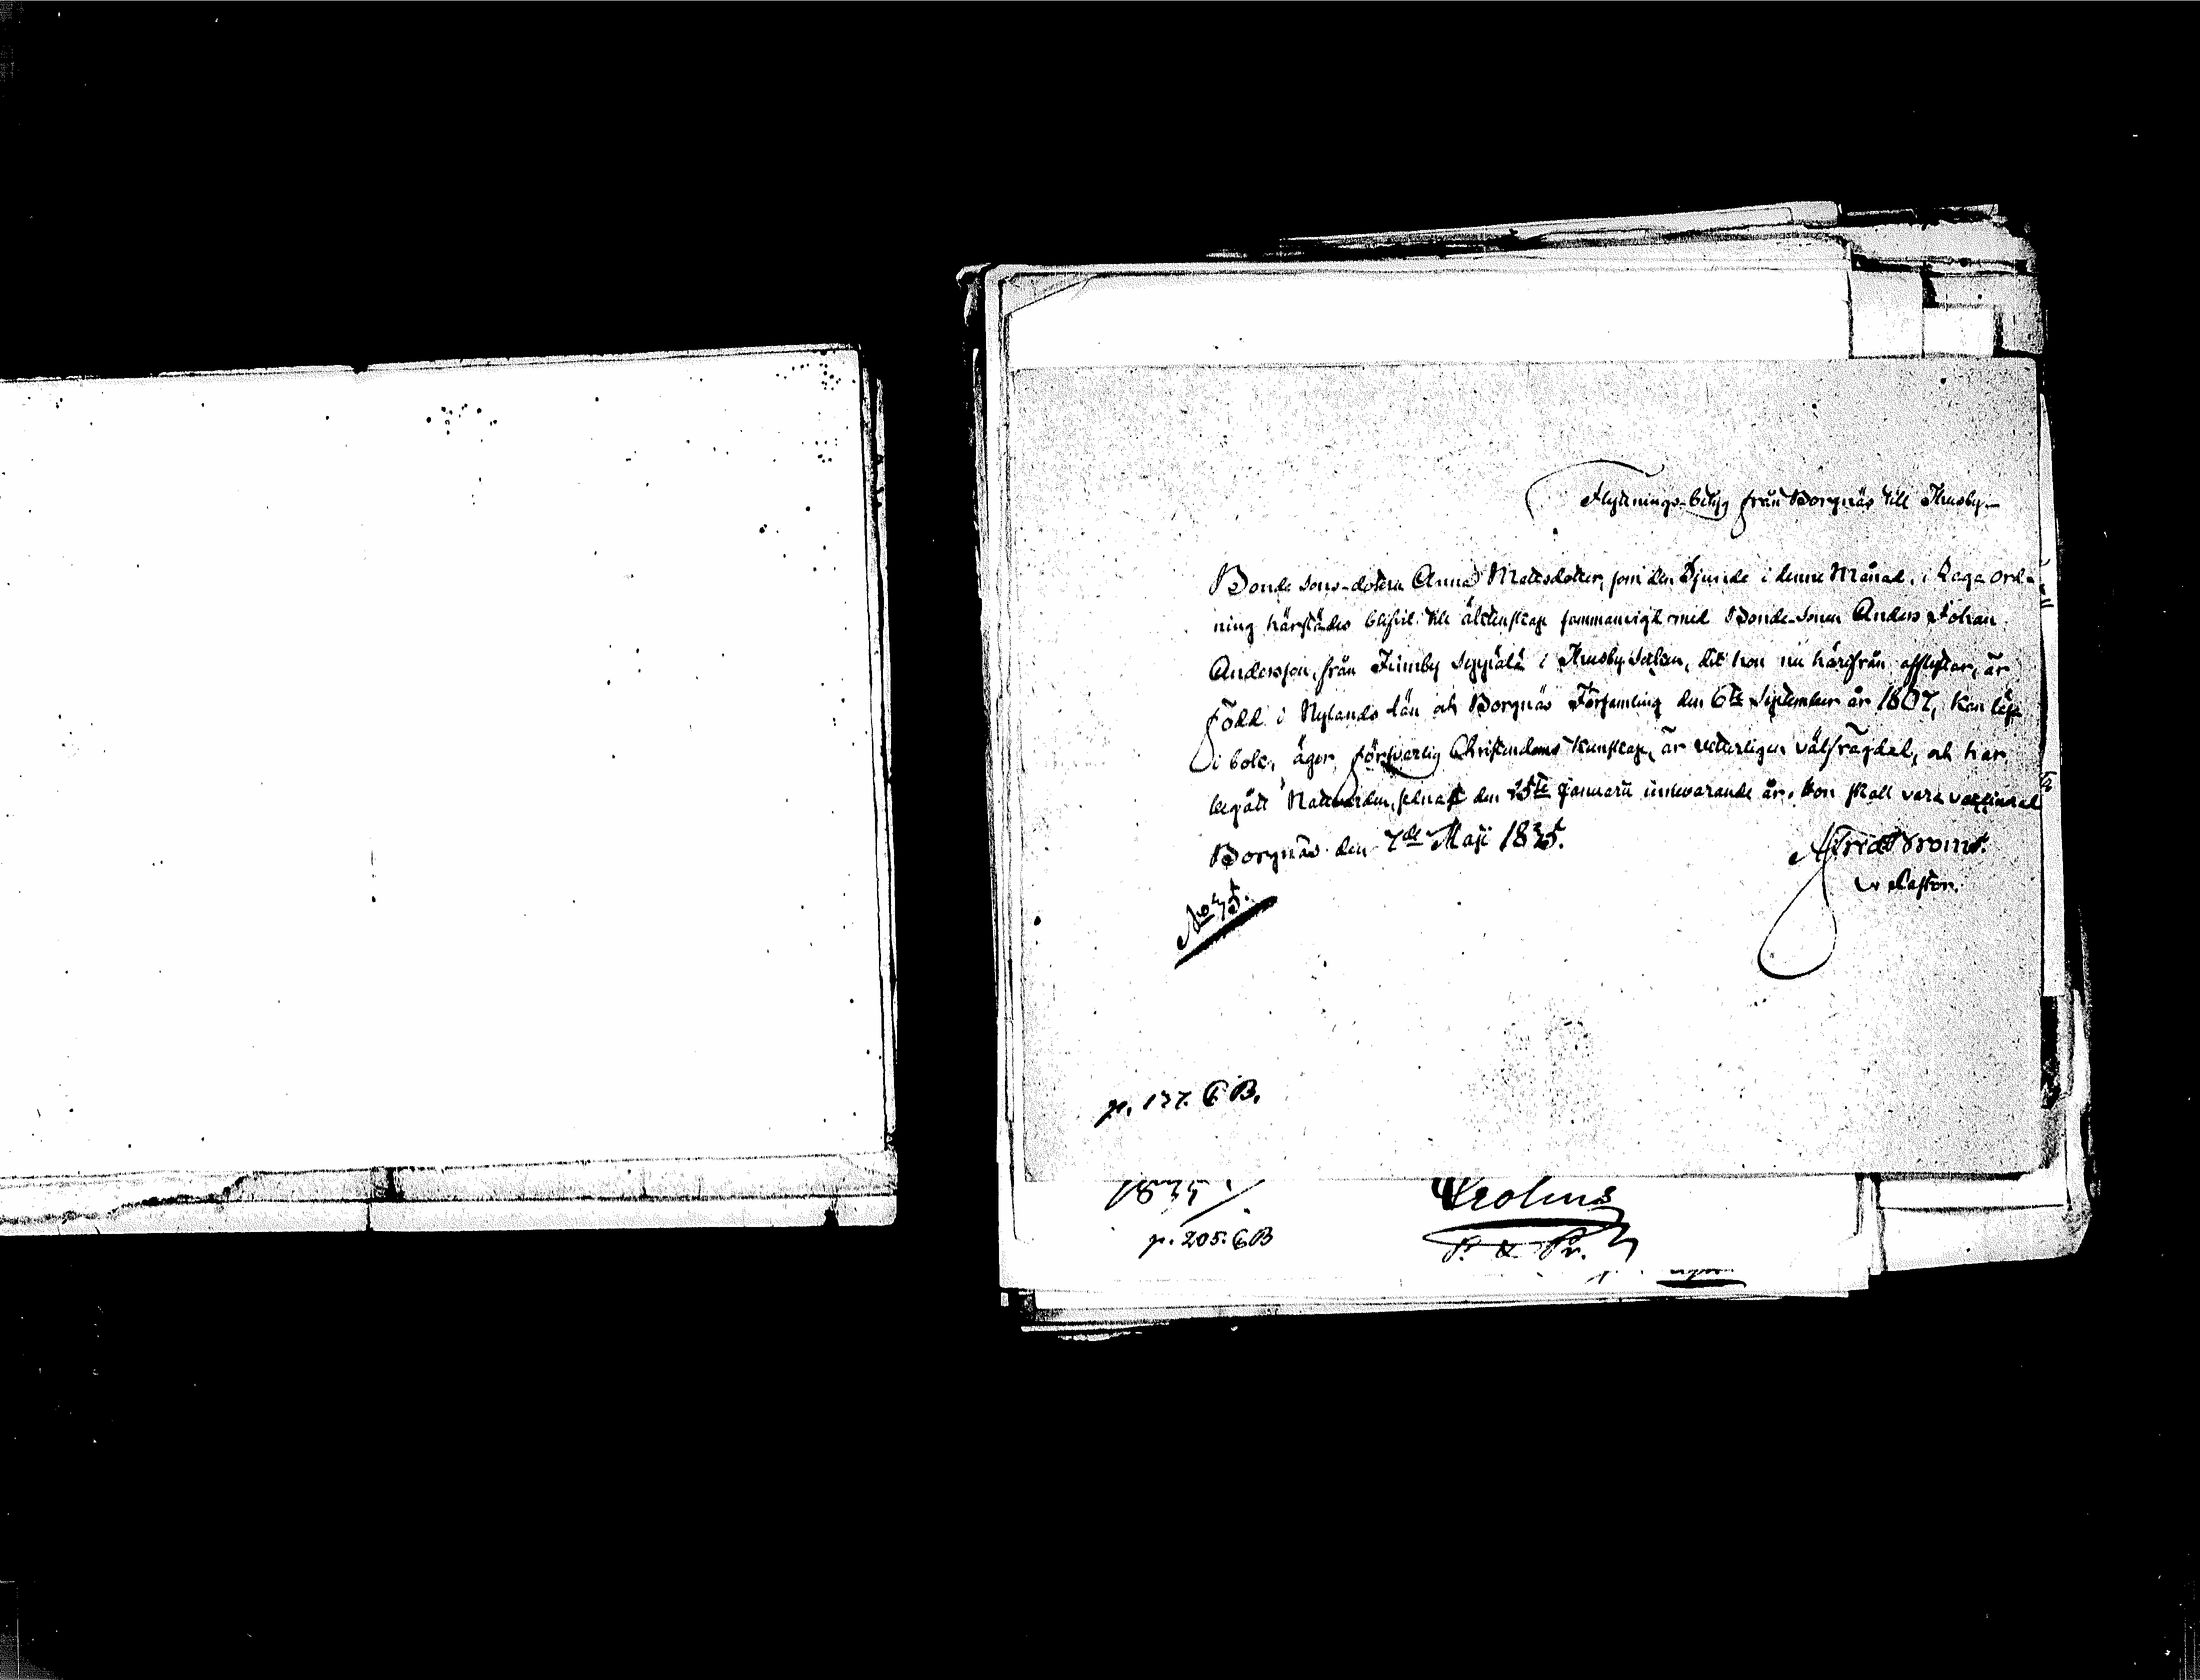 Flyttnings-betyg från Borgnäs till Thusby
Bonde Sons-dottern Anna Mattsdotter, som den Sjunde i denne Månad, i Laga ord-
ning härstädes blifvit till äktenskap sammanvigd med Bonde-Sonen Anders Johan
Andersson, från Finnby i Thusby Sokn, dit hon nu härifrån afflyttar, är
född i Nylands Län och Borgnäs Församling den 6te September år 1807, Kan läsa
i bok, äger försvarlig Christendoms Kunskap, är veterligen välfrägdad, och har
begått Nattvarden sednast den 25te Januarii innevarande år. Hon skall vara vaccinerad
Borgnäs den 7de Maji 1835.
Alfred
v Pastor.
No 35.
p. 137. C. B.
1835
p. 205. C B
P. & Pr.